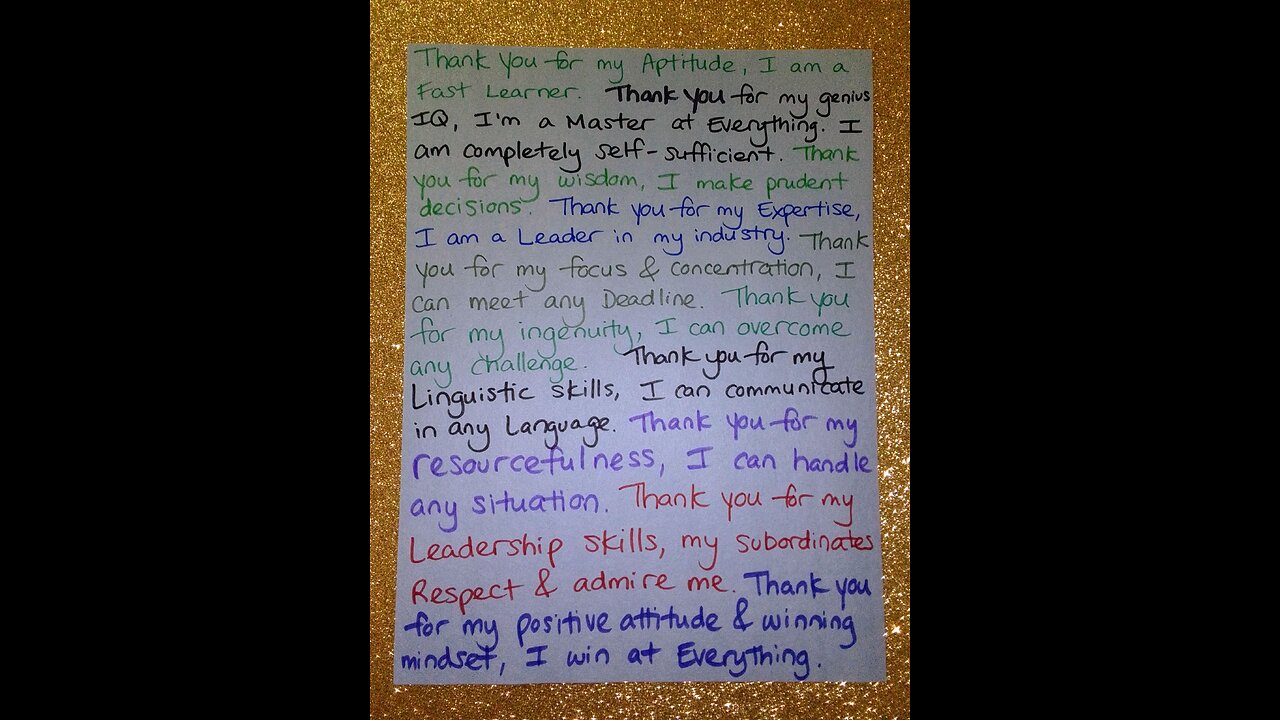 Thank You for my Aptitude, I am a
Fast Learner. Thank you for my genius
IQ, I'm a Master at Everything. I
am completely self-sufficient. Thank
you for my wisdom, I make prudent
decisions. Thank you for my Expertise,
I am a Leader in my industry. Thank
you for my focus & concentration, I
can meet any Deadline. Thank you
for my ingenuity, I can overcome
any challenge. Thank you for my
Linguistic skills, I can communicate
in any Language. Thank you for my
resourcefulness, I can handle
any situation. Thank you for my
Leadership skills, my subordinates
Respect & admire me. Thank you
for my positive attitude & winning
mindset, I win at Everything.